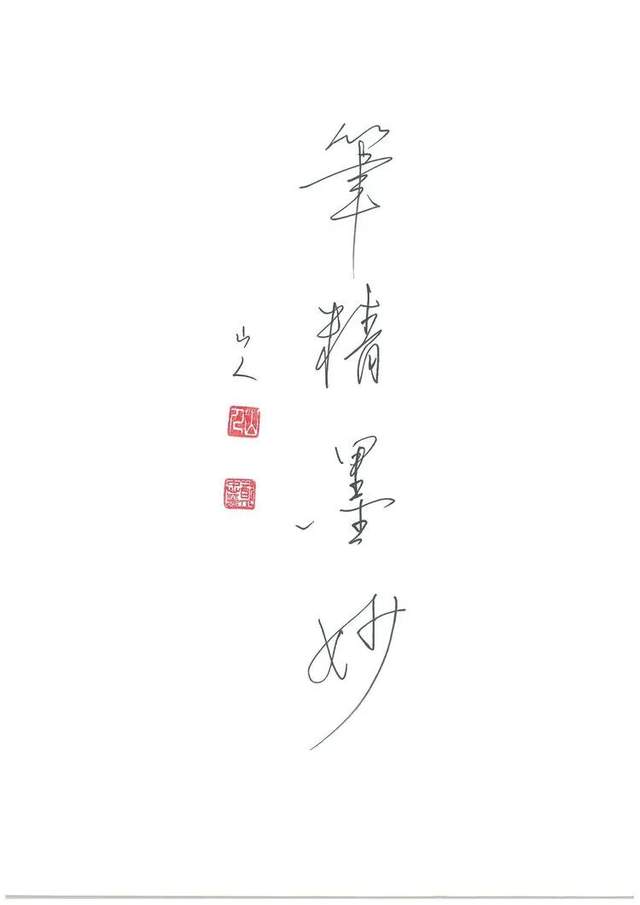 筆精墨妙
山人